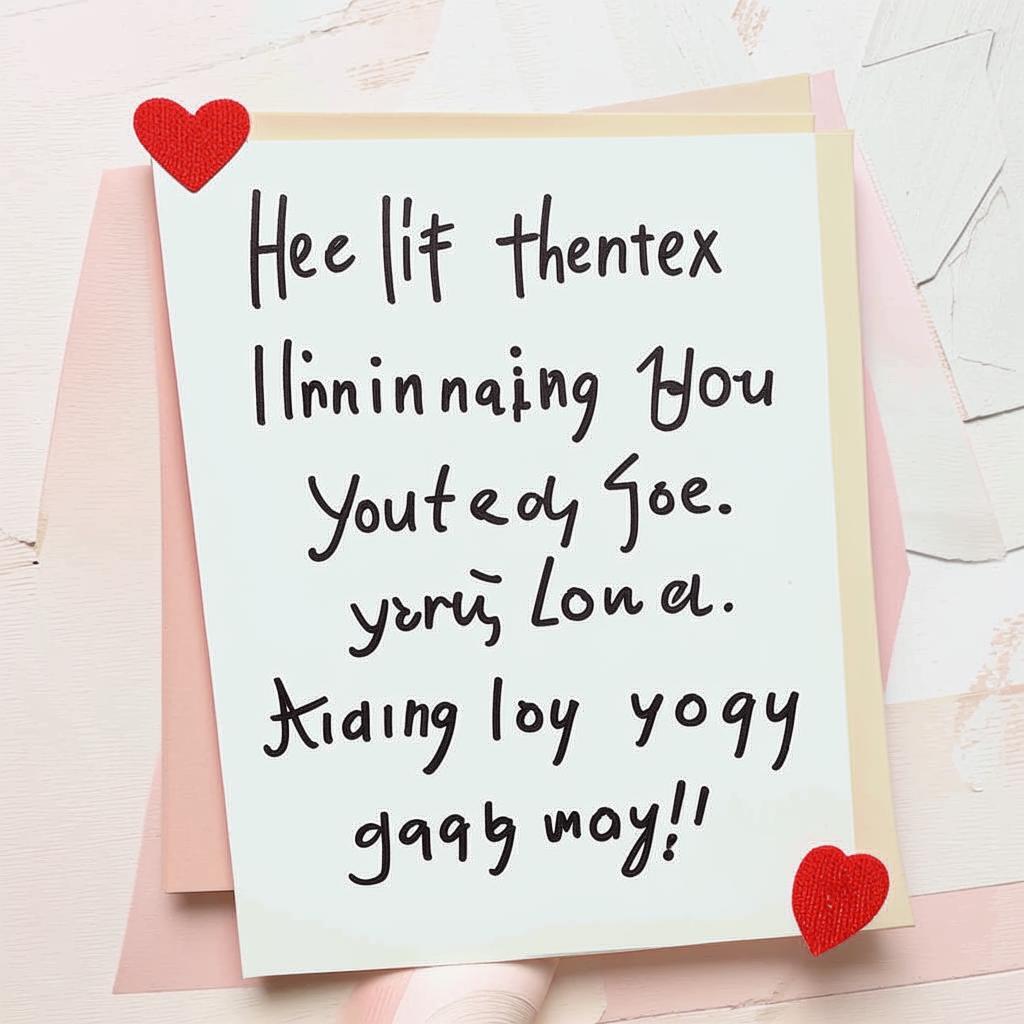 Hee lit thentex
llinin naing you
Youtedy goe.
Lond.
Aiding loy yoqy
gaqy may!!